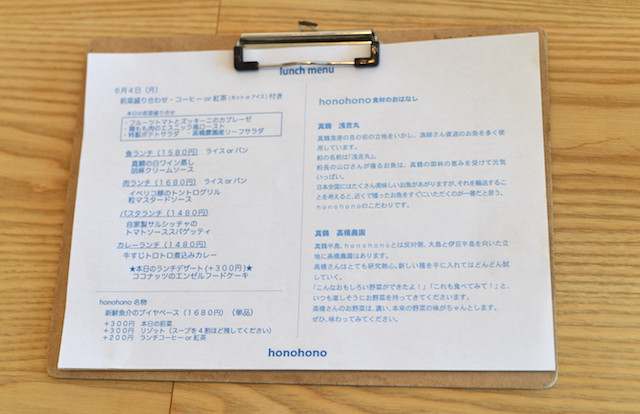 lunch menu
6月4日(月)
前菜盛り合わせ・コーヒー or 紅茶(ホット or アイス)付き
本日の前菜盛り合せ
・フルーツトマトとズッキーニのカプレーゼ
・鶏もも肉のエスニック風ロースト
・特製ポテトサラダ ・高橋農園産リーフサラダ
魚ランチ(1580円) ライス or パン
真鯛の白ワイン蒸し
胡麻クリームソース
肉ランチ(1680円) ライス or パン
イベリコ豚のトントログリル
粒マスタードソース
パスタランチ(1480円)
自家製サルシッチャの
トマトソーススパゲッティ
カレーランチ(1480円)
牛すじトロトロ煮込みカレー
★本日のランチデザート(+300円)★
ココナッツのエンゼルフードケーキ
honohono 名物
新鮮魚介のブイヤベース(1680円) (単品)
+300円 本日の前菜
+300円 リゾット(スープを4割ほど残してください)
+200円 ランチコーヒー or 紅茶
honohono 食材のおはなし
真鶴 浅吉丸
真鶴漁港の目の前の立地をいかし、漁師さん直送のお魚を多く使
用しています。
船の名前は「浅吉丸」。
船長の山口さんが獲るお魚は、真鶴の御林の恵みを受けて元気
いっぱい。
日本全国にはたくさん美味しいお魚がありますが、それを輸送するこ
とを考えると、近くで獲ったお魚をすぐにいただくのが一番だと思う。
honohonoのこだわりです。
真鶴 高橋農園
真鶴半島、honohonoとは反対側、大島と伊豆半島を向いた立
地に高橋農園はあります。
高橋さんはとても研究熱心。新しい種を手に入れてはどんどん試
していく。
「こんなおもしろい野菜ができたよ!」「これも食べてみて!」と、
いつも楽しそうにお野菜を持ってきてくださいます。
高橋さんのお野菜は、濃い、本来の野菜の味がちゃんとします。
ぜひ、味わってみてください。
honohono